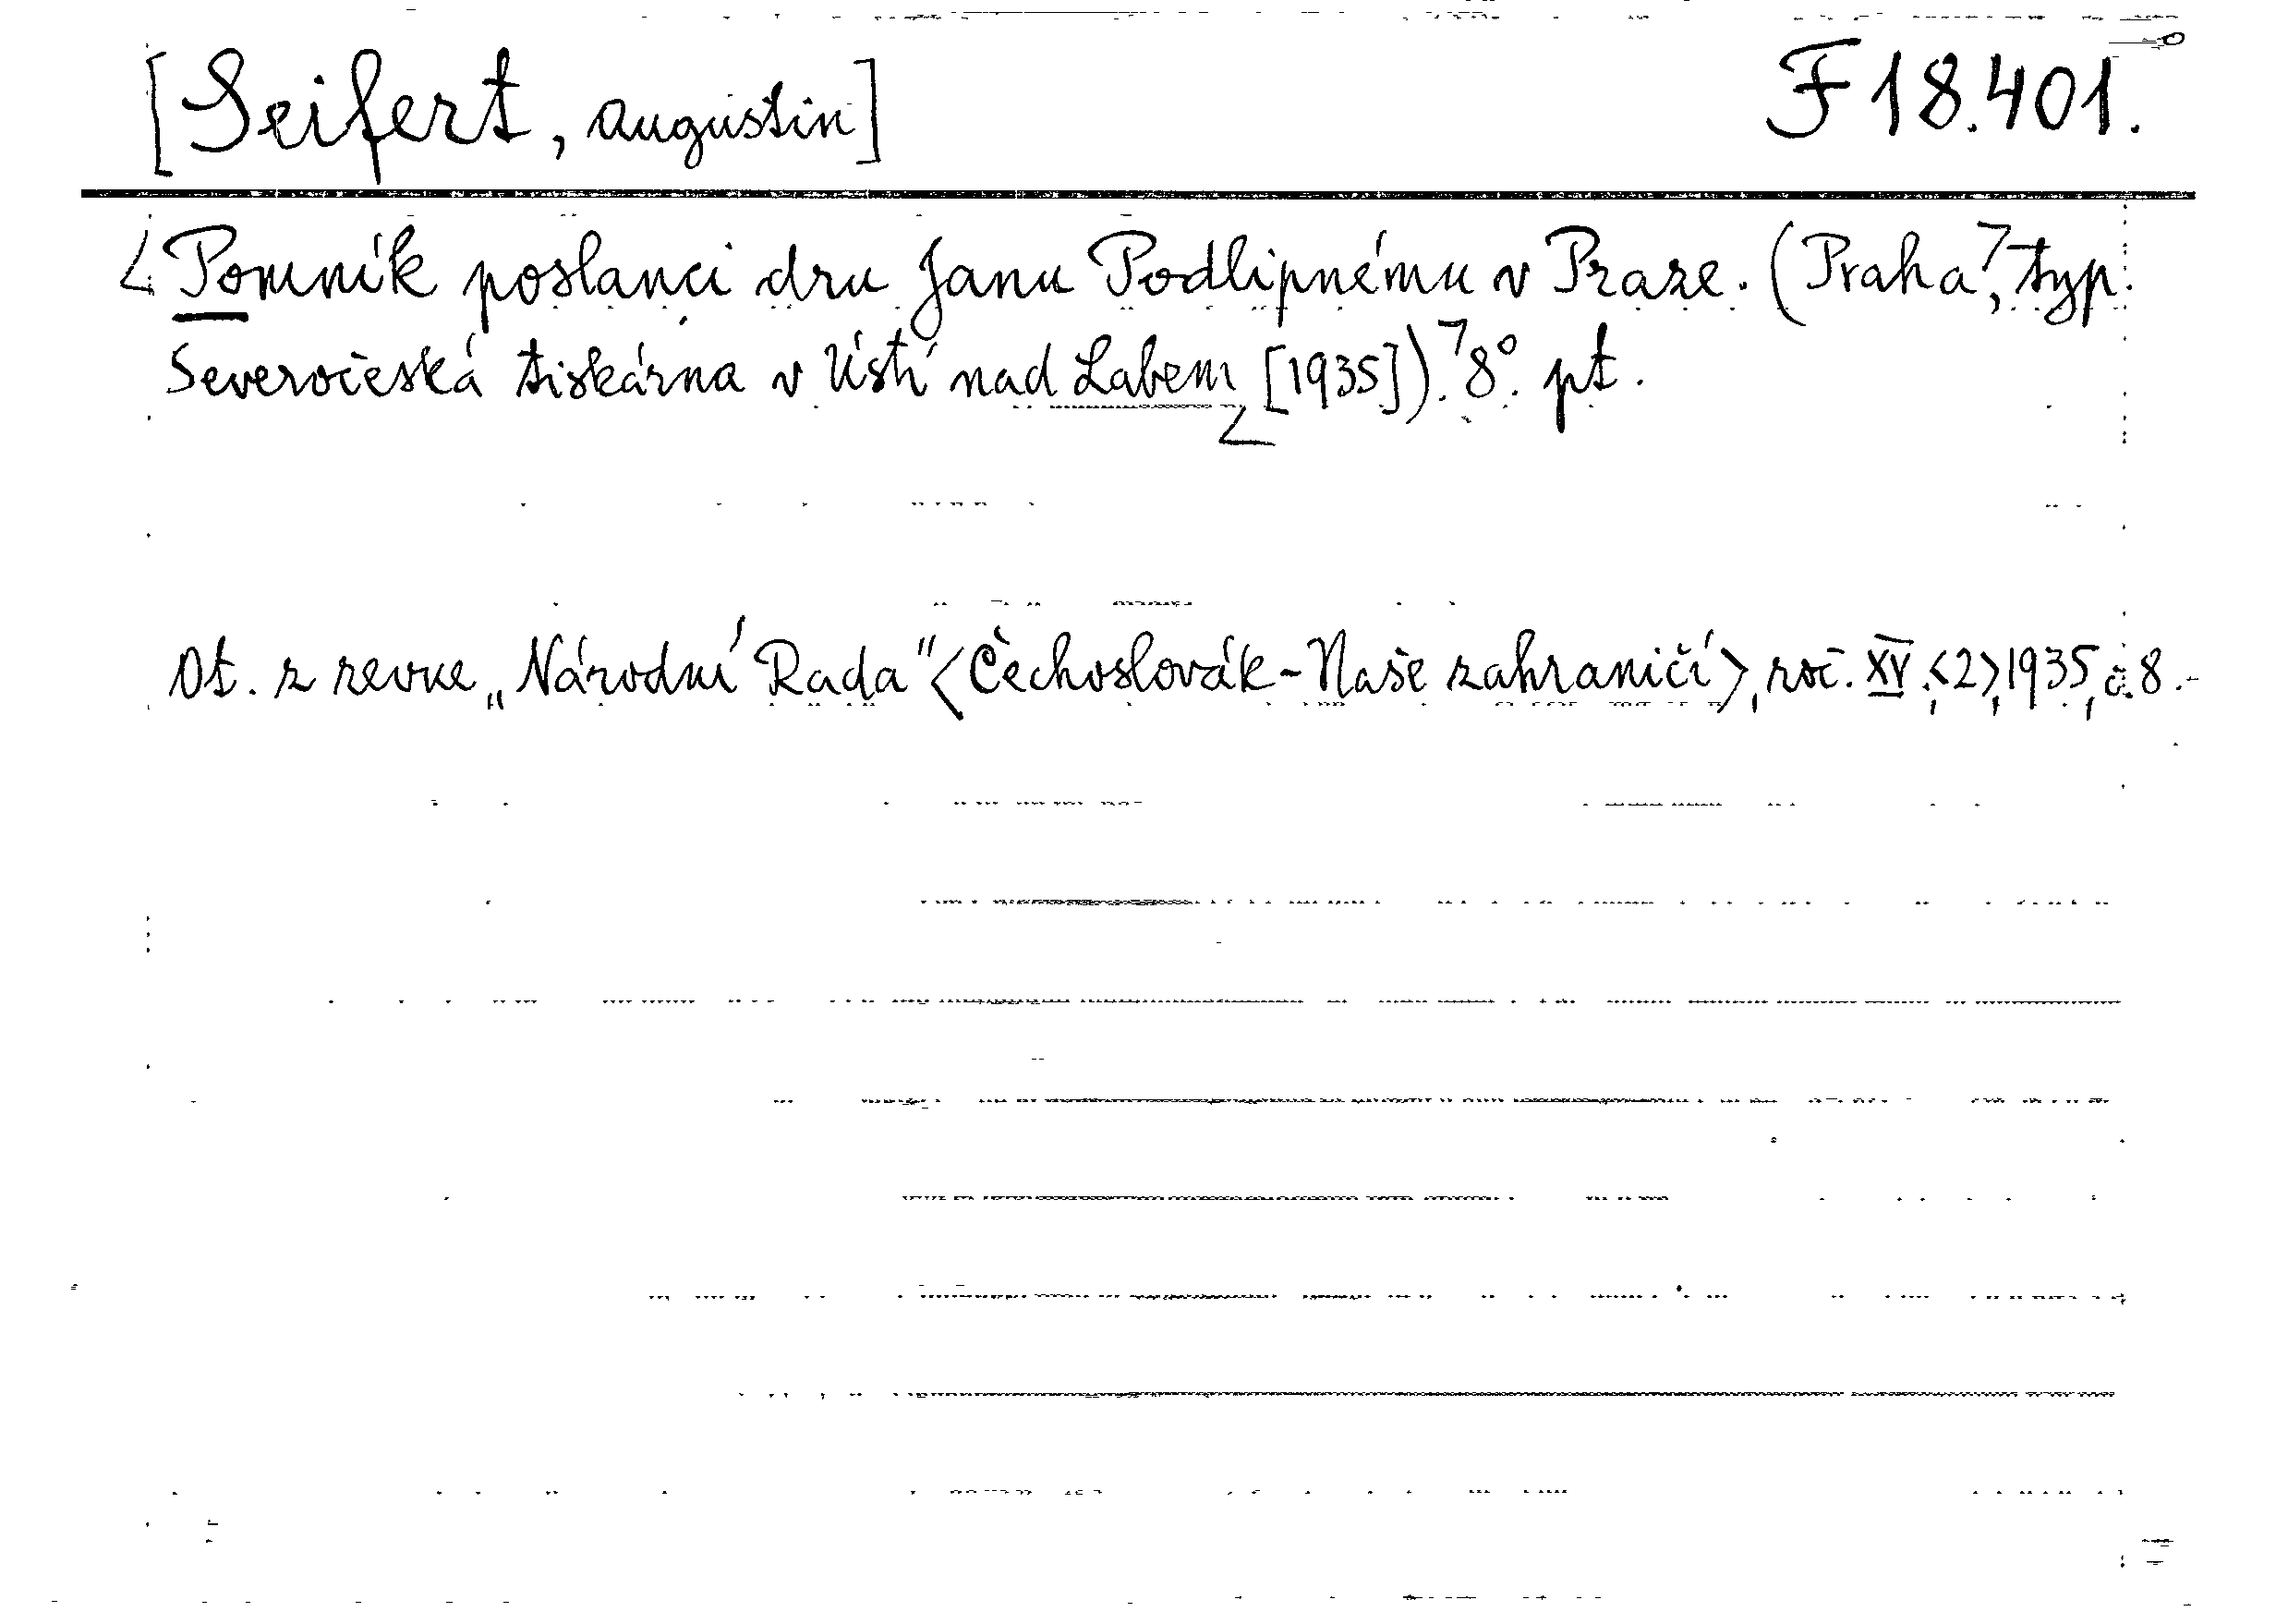 [Seifert, Augustin] F 18.401.
Pomník poslanci dru Janu Podlipnému v Praze. (Praha, typ.
Severočeská tiskárna v Ústí nad Labem [1935]). 8°. pt.
Ot. z revue „Národní Rada" <Čechoslovák - Naše zahraničí>, roč. XV, <2>, 1935, č. 8.-